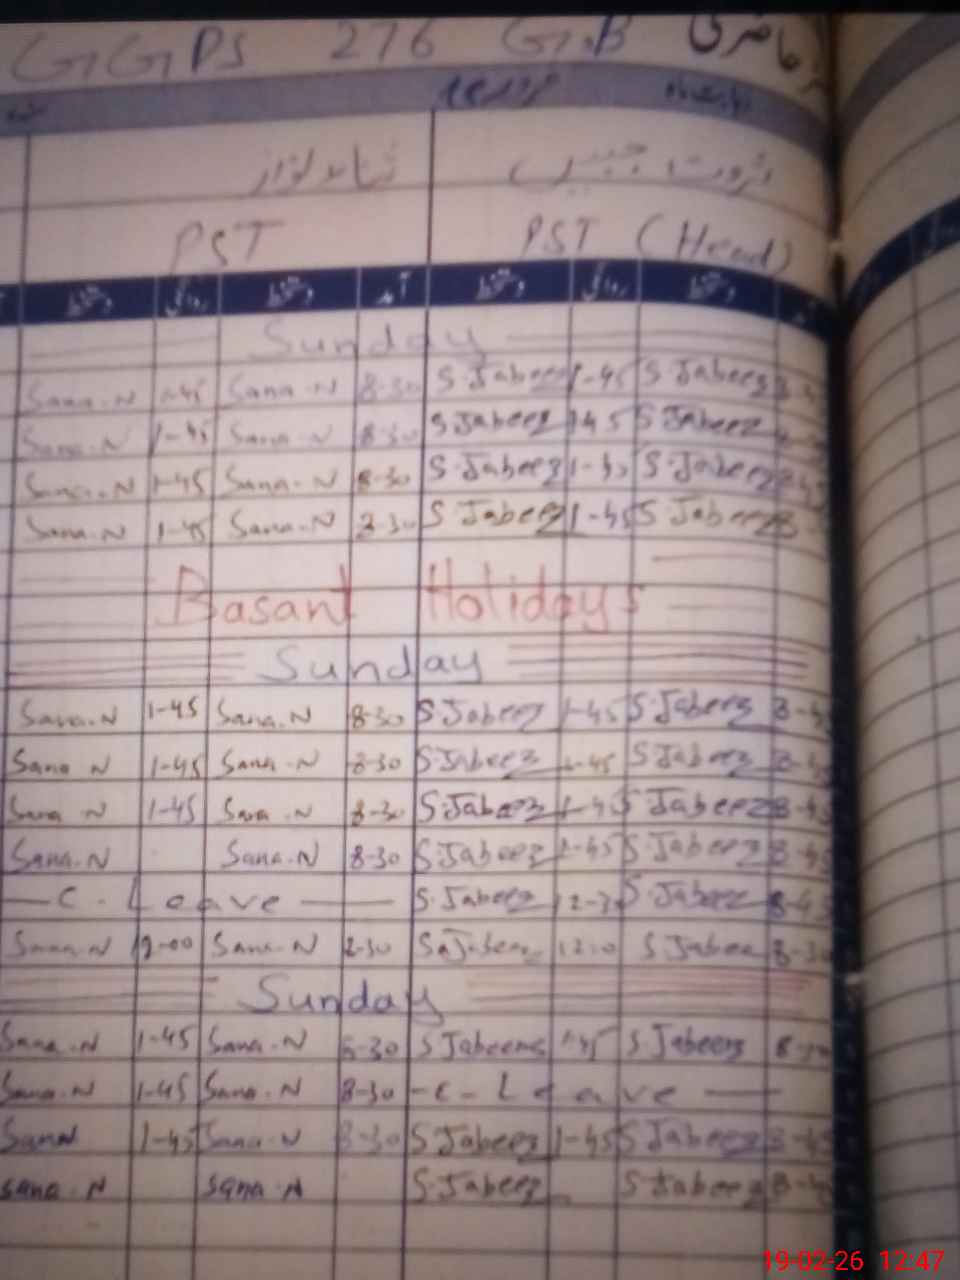 GGPS 276 G.B حاضری
فروری
ثناء نواز ثروت جبیں
PST PST (Head)
دستخط روانگی دستخط آمد دستخط روانگی دستخط
Sunday
Sana.N 1-45 Sana.N 8-30 S.Jabeez 1-45 S Jabeez
Sana.N 1-45 Sana.N 8-30 S Jabeez 1-45 S Jabeez
Sana.N 1-45 Sana.N 8-30 S.Jabeez S.Jabeez
Sana.N 1-45 Sana.N 8-30 S Jabeez 1-45 S Jabeez
Basant Holidays
Sunday
Sana.N 1-45 Sana.N 8-30 S.Jabeez 1-45 S.Jabeez 8-45
Sana N 1-45 Sana.N 8-30 S.Jabeez 1-45 S.Jabeez 8-45
Sana N 1-45 Sana.N 8-30 S.Jabeez 1-45 S Jabeez 8-45
Sana.N Sana.N 8-30 S.Jabeez 1-45 S.Jabeez 8-45
— C. Leave — S.Jabeez 12-30 S.Jabeez 8-45
Sana.N 12-00 Sana.N 8-30 S Jabeez
Sunday
Sana.N 1-45 Sana.N 8-30 S Jabeez 1-45 S Jabeez
Sana.N 1-45 Sana.N 8-30 - C - Leave —
Sana N 1-45 Sana.N 8-30 S Jabeez 1-45 S Jabeez 8-45
sana.N sana.N S.Jabeez S Jabeez 8-45
19-02-26 12:47